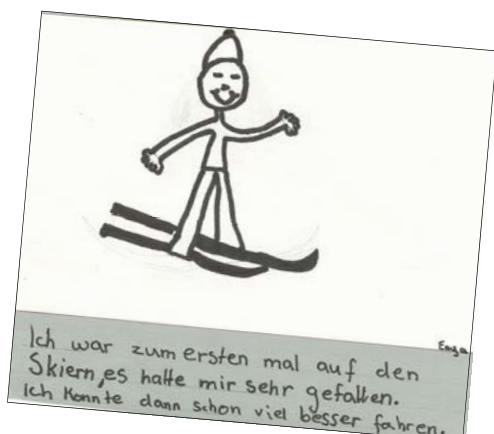 Enya
Ich war zum ersten mal auf den
Skiern, es hatte mir sehr gefallen.
Ich konnte dann schon viel besser fahren.